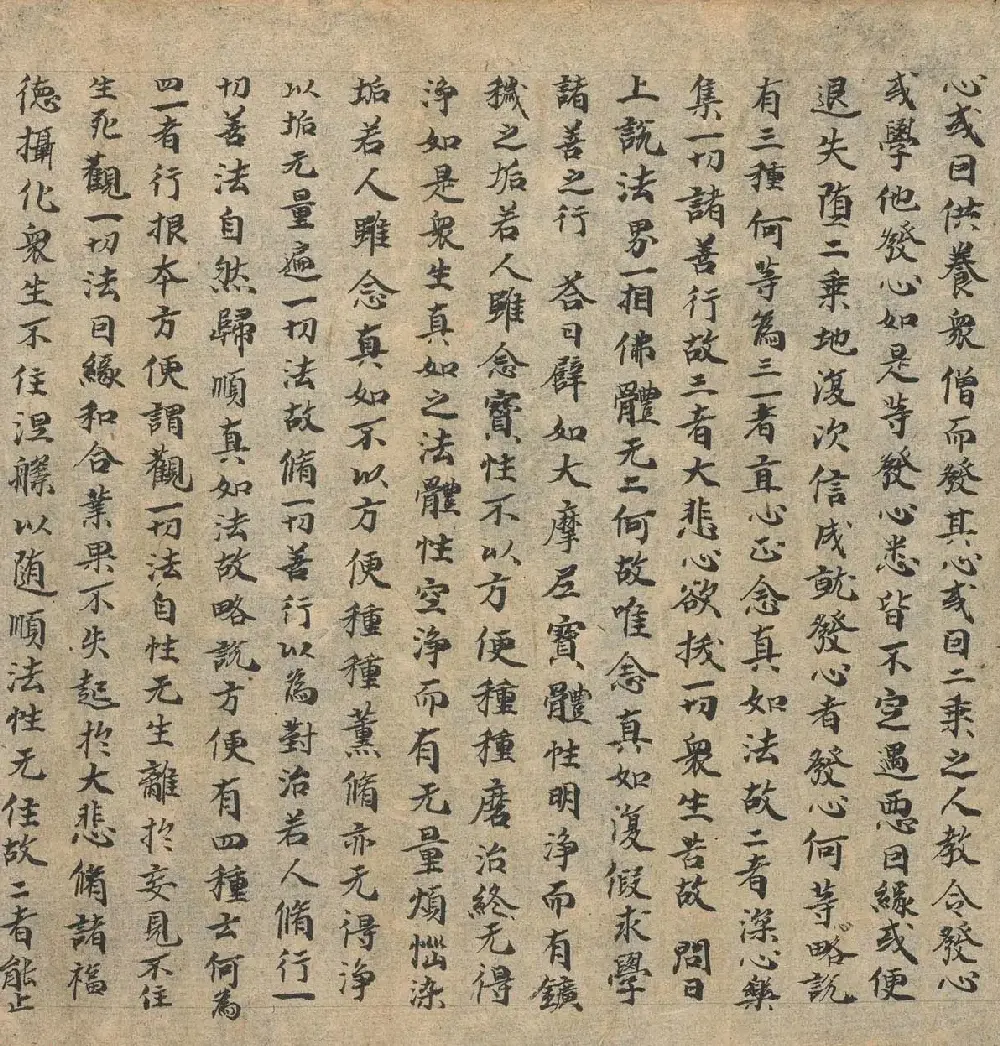 心或因供養衆僧而發其心或因二乘之人教令發心
或學他發心如是等發心悉皆不定遇惡因緣或便
退失堕二乘地復次信成就發心者發心何等略說
有三種何等為三一者直心正念真如法故二者深心樂
集一切諸善行故三者大悲心欲拔一切衆生苦故 問曰
上說法界一相佛體无二何故唯念真如復假求學
諸善之行 荅曰辟如大摩尼寶體性明淨而有鑛
穢之垢若人雖念寶性不以方便種種磨治終无得
淨如是衆生真如之法體性空淨而有无量煩惱染
垢若人雖念真如不以方便種種薰脩亦无得淨
以垢无量遍一切法故脩一切善行以為對治若人脩行一
切善法自然歸順真如法故略說方便有四種云何為
四一者行根本方便謂觀一切法自性无生離於妄見不住
生死觀一切法因緣和合業果不失起於大悲脩諸福
德攝化衆生不住涅槃以随順法性无住故二者能止